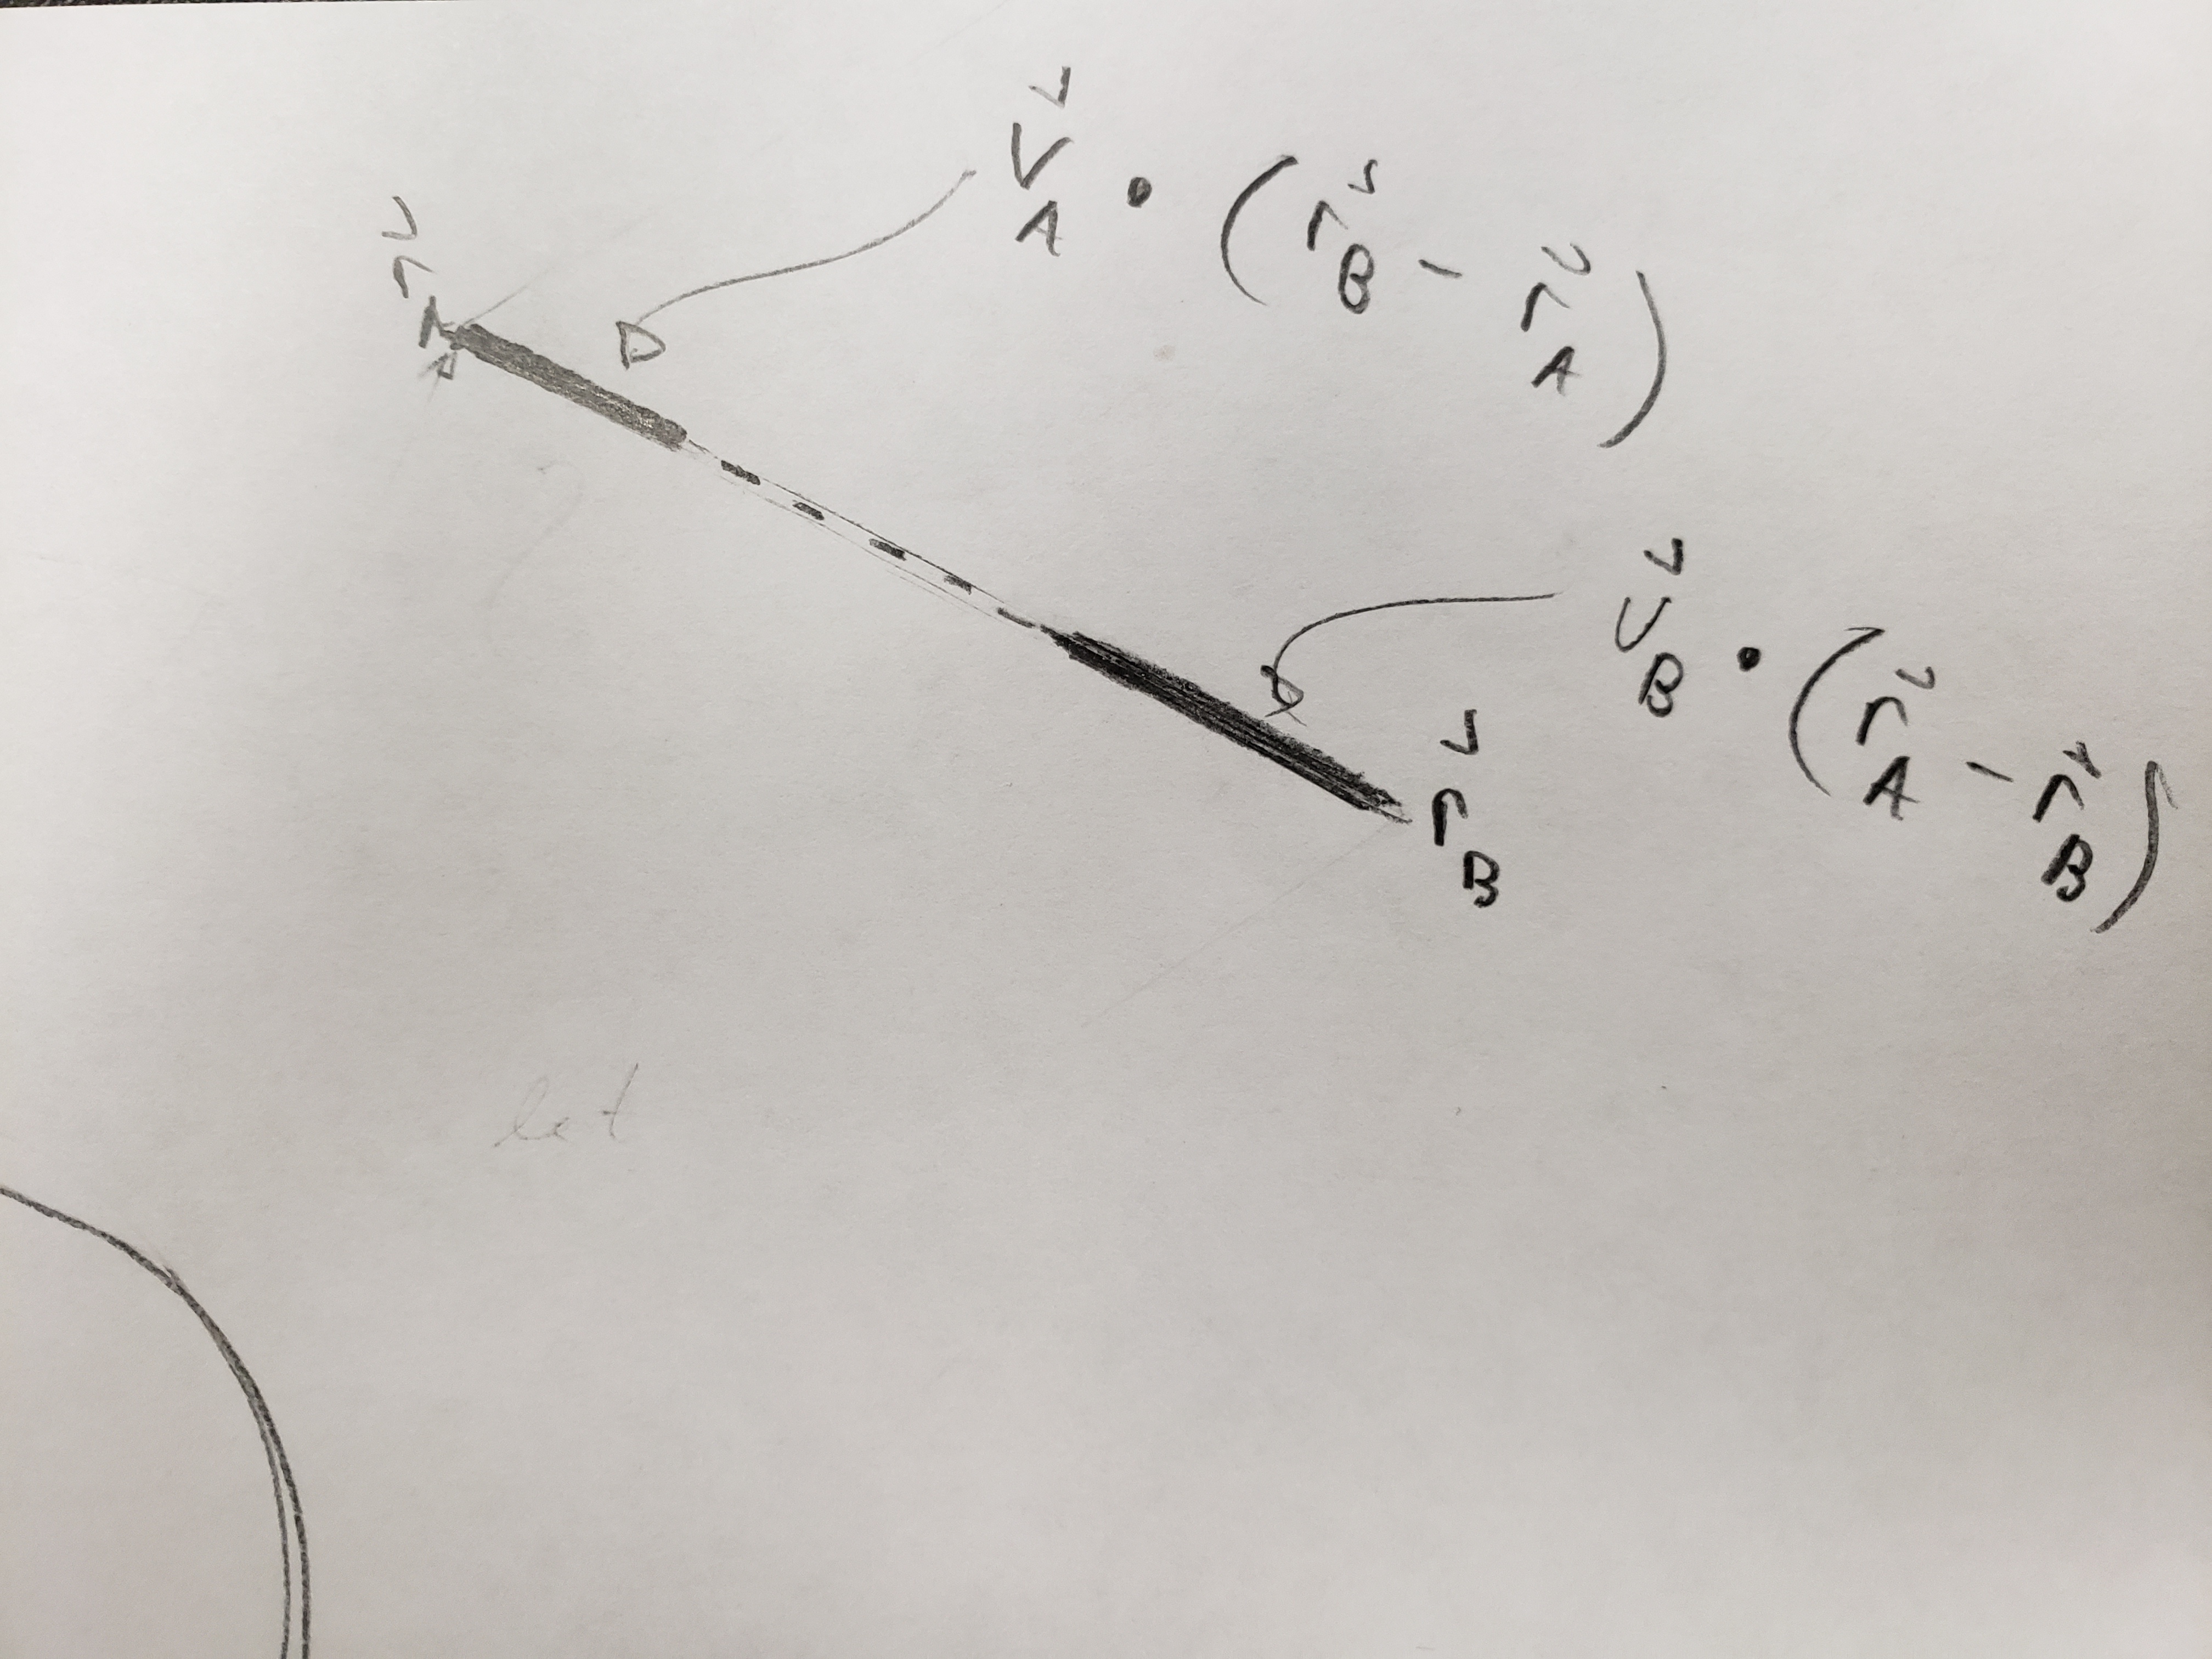 v⃗_A • (r⃗_B - r⃗_A)
r⃗_A
v⃗_B • (r⃗_A - r⃗_B)
r⃗_B
let